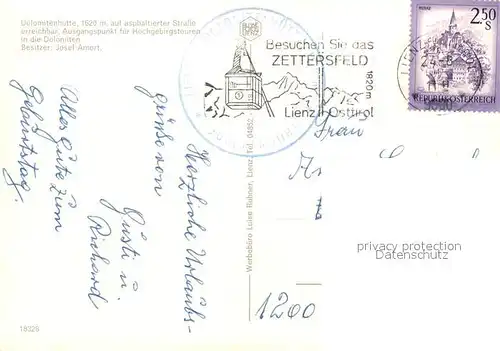 Dolomitenhütte, 1620 m, auf asphaltierter Straße
erreichbar. Ausgangspunkt für Hochgebirgstouren
in die Dolomiten
Besitzer: Josef Amort.
Alles Gute zum
Geburtstag.
Herzliche Urlaubs-
grüße von
Gusti u.
Richard
18226
Werbebüro Luise Rahner, Lienz, Tel. 04852
Besuchen Sie das
ZETTERSFELD
1820m
Lienz Osttirol
LIENZ
2.50
S
REPUBLIK ÖSTERREICH
Frau
1200
privacy protection
VARIAGE.COM